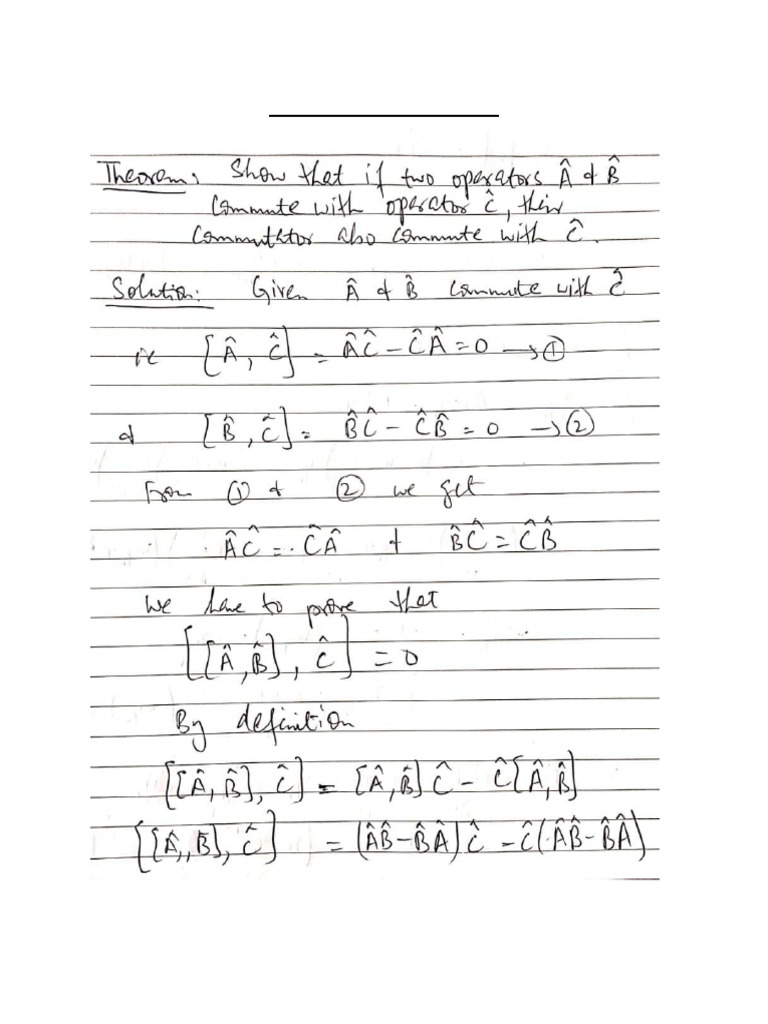 Theorem: Show that if two operators Â & B̂
Commute with operator Ĉ, their
Commutator also Commute with Ĉ.
Solution: Given Â & B̂ Commute with Ĉ
ie [Â, Ĉ] = ÂĈ - ĈÂ = 0 → ①
& [B̂, Ĉ] = B̂Ĉ - ĈB̂ = 0 → ②
From ① & ② we get
ÂĈ = ĈÂ & B̂Ĉ = ĈB̂
We have to prove that
[[Â, B̂], Ĉ] = 0
By definition
[[Â, B̂], Ĉ] = [Â, B̂] Ĉ - Ĉ [Â, B̂]
[[Â, B̂], Ĉ] = (ÂB̂ - B̂Â) Ĉ - Ĉ (ÂB̂ - B̂Â)